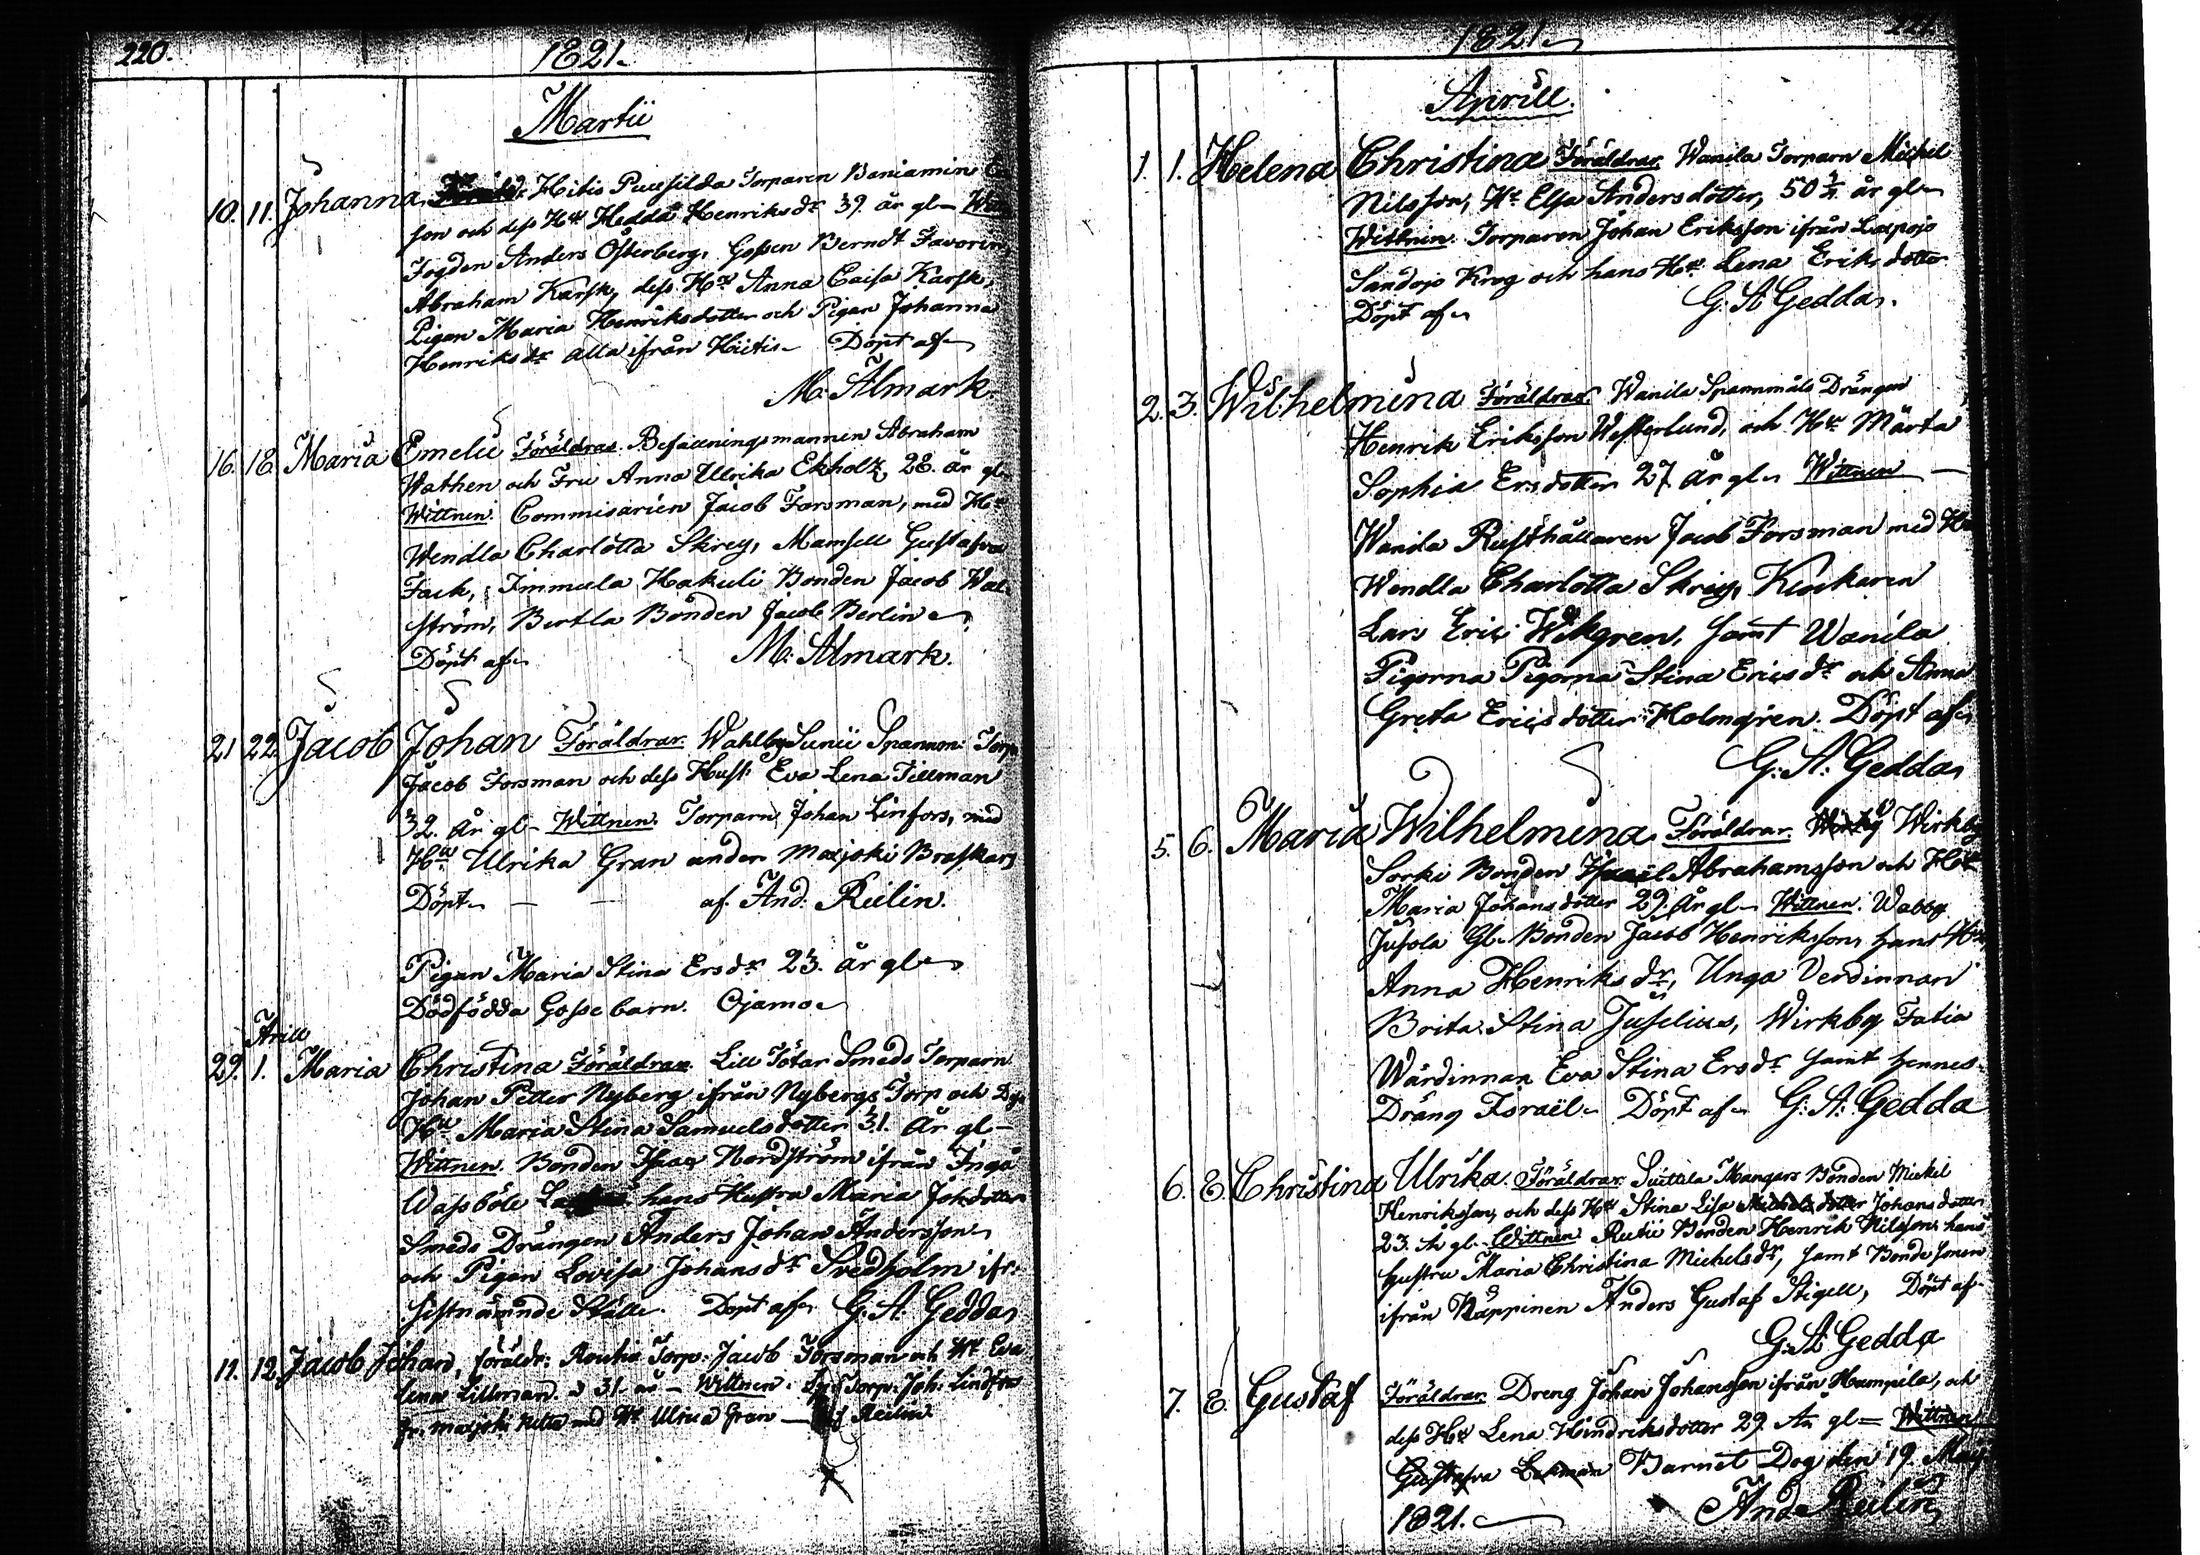 220.
1821.
Martii
10. 11. Johanna, Hitis Torparen Baniamin
son och dess Hu Hedda Henriks dr 39. år gl
Fogden Anders Österberg, Gossen Berndt Favorin,
Abraham Karsk, dess Hu Anna Caisa Karsk,
Pigan Maria Henriksdotter och Pigan Johanna
Henriks dr alla ifrån Hiitis Döpt af
M: Almark.
16. 18. Maria Emelie Föräldrar Befallningsmannen Abraham
Wathen och Fru Anna Ullrika Ekholtz, 28. år gl
Wittnen. Commisarien Jacob Forsman, med Hu
Wendla Charlotta Skrey, Mamsell Gustafva
Fack, Immula Hakuli Bonden Jacob Wal
ström, Bertla Bonden Jacob Berlin
Döpt af M: Almark.
21 22. Jacob Johan Föräldrar. Wahlby Sunii Spannm: Torp
Jacob Forsman och dess Hust: Eva Lena Tillman
32. År gl Wittnen. Torparn Johan Linfors, med
Hu Ulrika Gran under
Döpt af And. Reilin.
Pigan Maria Stina Ersdr 23. år gl
Dödfödda Gossebarn. Ojamo
Arill
29. 1. Maria Christina Föräldrar. Lill Tötar Smeds Torparn
Johan Petter Nyberg ifrån Nybergs Torp och
Hu Maria Stina Samuelsdotter 31. År gl
Wittnen. Bonden Isaac Nordström ifrån Ingå
Wassböle hans Hustru Maria Johdotter
Smeds Drängen Anders Johan Andersson
och Pigan Lovisa Johans dr Svedholm ifr:
sistnämnde Ställe. Döpt af G. A. Gedda
11. 12 Jacob Johan, föräldr: Torp: Jacob Forsman och Hu Eva
Lena Tillman 31 år Wittnen: Torp: Joh: Lindfors
med Hu Ulrica Gran Reilin
1821
Aprill.
1. 1. Helena Christina Föräldrar. Wanila Torparn Michel
Nilsson, Hu Elsa Andersdotter, 50 1/2 år gl
Wittnen. Torparen Johan Eriksson ifrån Lojo
Sandojo Krog och hans Hu Lena Eriksdotter
Döpt af G. A Gedda.
2. 3. Wilhelmina Föräldrar. Wanila Spannmåls Drängen
Henrik Eriksson Westerlund, och Hu Märta
Sophia Ersdotter 27 År gl Wittnen
Wanila Rusthållaren Jacob Forsman med Hu
Wendla Charlotta Skrey, Kuskaren
Lars Eric Wikgren, samt Wanila
Pigorna Pigorna Stina Erics dr och Anna
Greta Ericsdotter Holmgren. Döpt af
G: A: Gedda
5. 6. Maria Wilhelmina Föräldrar. Wirkby Wirkby
Sorki Bonden Israel Abrahamsson och Hu
Maria Johansdotter 29. År gl Wittnen. Wabby
Jusola Gl. Bonden Jacob Henriksson, hans Hu
Anna Henriks dr, Unga Verdinnan
Brita Stina Juselius, Wirkby Fatia
Wärdinnan Eva Stina Ersdr samt hennes
Dräng Israel Döpt af G: A: Gedda
6. 8. Christina Ulrika. Föräldrar: Suittila Mangars Bonden Mickel
Henriksson, och dess Hu Stina Lisa Johansdotter
23. År gl Wittnen Bonden Henrik Nilsson, hans
hustru Maria Christina Michels dr, samt Bonde sonen
ifrån Käppinen Anders Gustaf Stigell, Döpt af
G. A Gedda
7. 8. Gustaf Föräldrar. Dreng Johan Johansson ifrån Humpila, och
dess Hu Lena Hindriksdotter 29. År gl Wittnen
Gustafva Barnet Dog den 19. Maij
1821. And Reilin